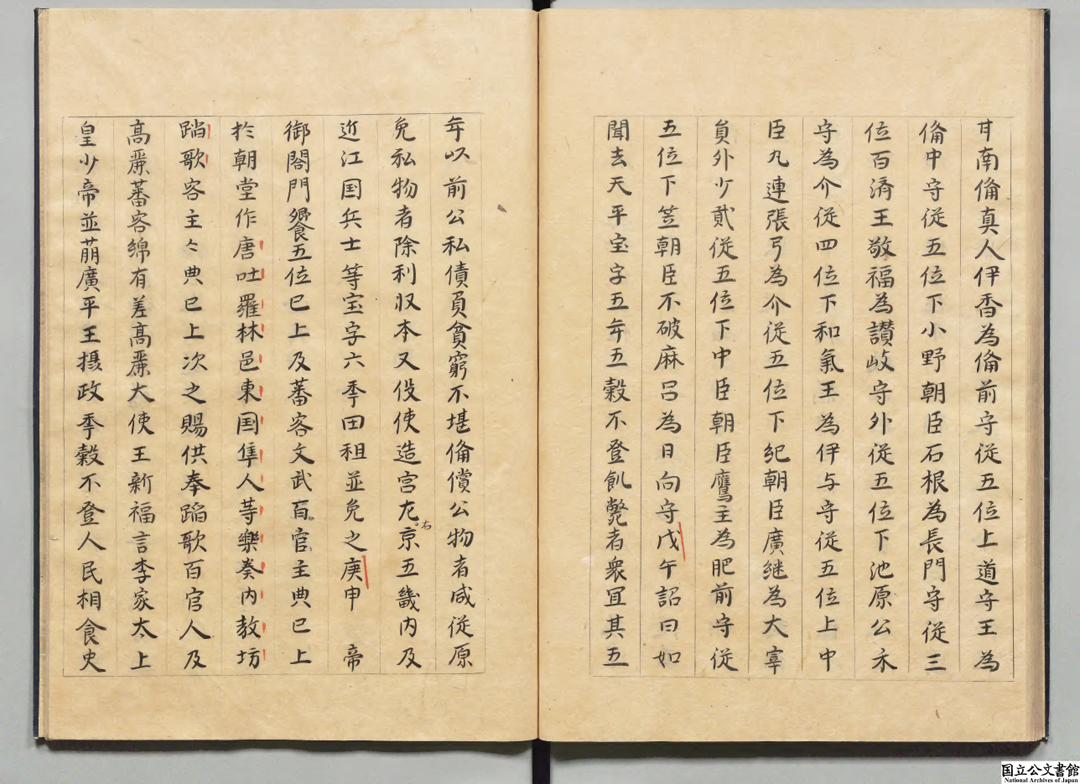 甘南俻真人伊香為俻前守従五位上道守王為
俻中守従五位下小野朝臣石根為長門守従三
位百済王敬福為讃岐守外従五位下池原公禾
守為介従四位下和氣王為伊与守従五位上中
臣丸連張弓為介従五位下紀朝臣廣継為大宰
貟外少貳従五位下中臣朝臣鷹主為肥前守従
五位下笠朝臣不破麻呂為日向守戊午詔曰如
聞去天平宝字五年五穀不登飢斃者衆冝其五
年以前公私債負貧窮不堪俻償公物者咸従原
免私物者除利収本又役使造宮左右京五畿内及
近江国兵士等宝字六季田租並免之庚申　帝
御閤門饗五位已上及蕃客文武百官主典已上
於朝堂作唐吐羅林邑東国隼人等樂奏内教坊
踏歌客主々典已上次之賜供奉蹈歌百官人及
高麗蕃客綿有差高麗大使王新福言李家太上
皇少帝並崩廣平王摂政季穀不登人民相食史
国立公文書館
National Archives of Japan